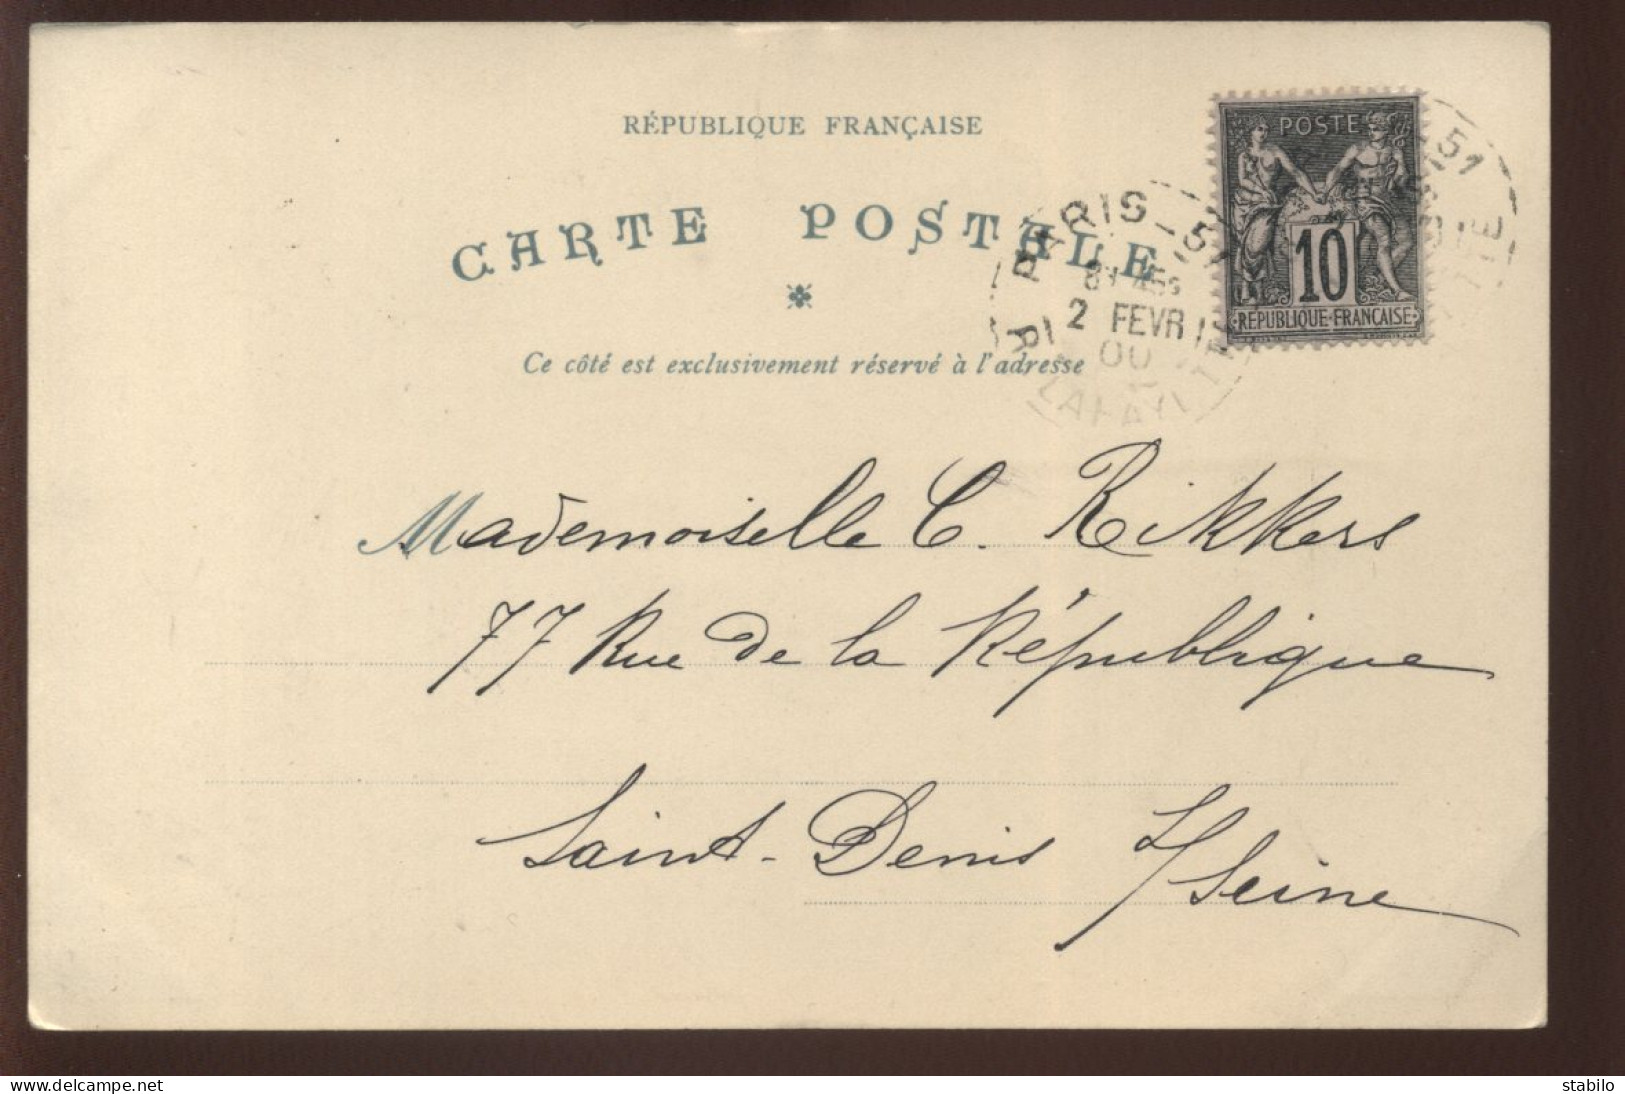 RÉPUBLIQUE FRANÇAISE
CARTE POSTALE
Ce côté est exclusivement réservé à l'adresse
POSTE
10
RÉPUBLIQUE FRANÇAISE
PARIS - 51
2 FEVR
00
R. LAFAYETTE
51
Mademoiselle C. Rikkers
77 Rue de la République
Saint-Denis s/Seine
stabilo
delcampe.net